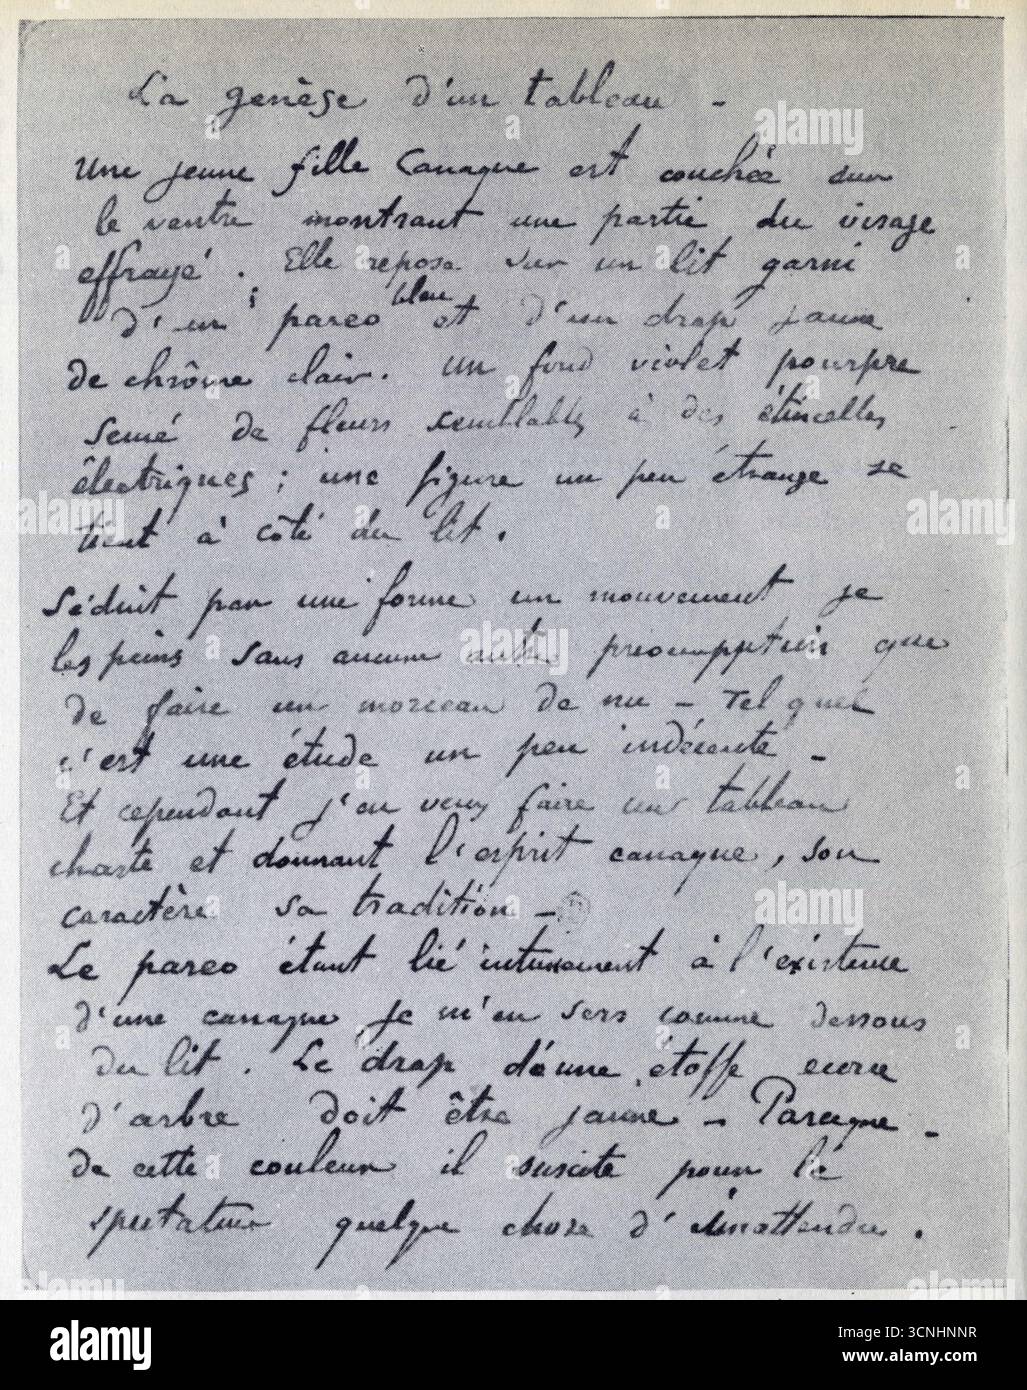 La genèse d'un tableau -
Une jeune fille Canaque est couchée sur
le ventre montrant une partie du visage
effrayé. Elle repose sur un lit garni
d'un pareo bleu et d'un drap jaune
de chrôme clair. Un fond violet pourpre
semé de fleurs semblables à des étincelles
électriques; une figure un peu étrange se
tient à côté du lit.
Séduit par une forme un mouvement je
les peins sans aucune autre préoccupption que
de faire un morceau de nu - Tel quel
c'est une étude un peu indécente -
Et cependant j'en veux faire un tableau
chaste et donnant l'esprit canaque, son
caractère sa tradition -
Le pareo étant lié intimement à l'existence
d'une canaque je m'en sers comme dessous
du lit. Le drap d'une étoffe ecorce
d'arbre doit être jaune - Parceque -
de cette couleur il suscite pour le
spectateur quelque chose d'inattendu.
alamy
3CNHNNR
www.alamy.com